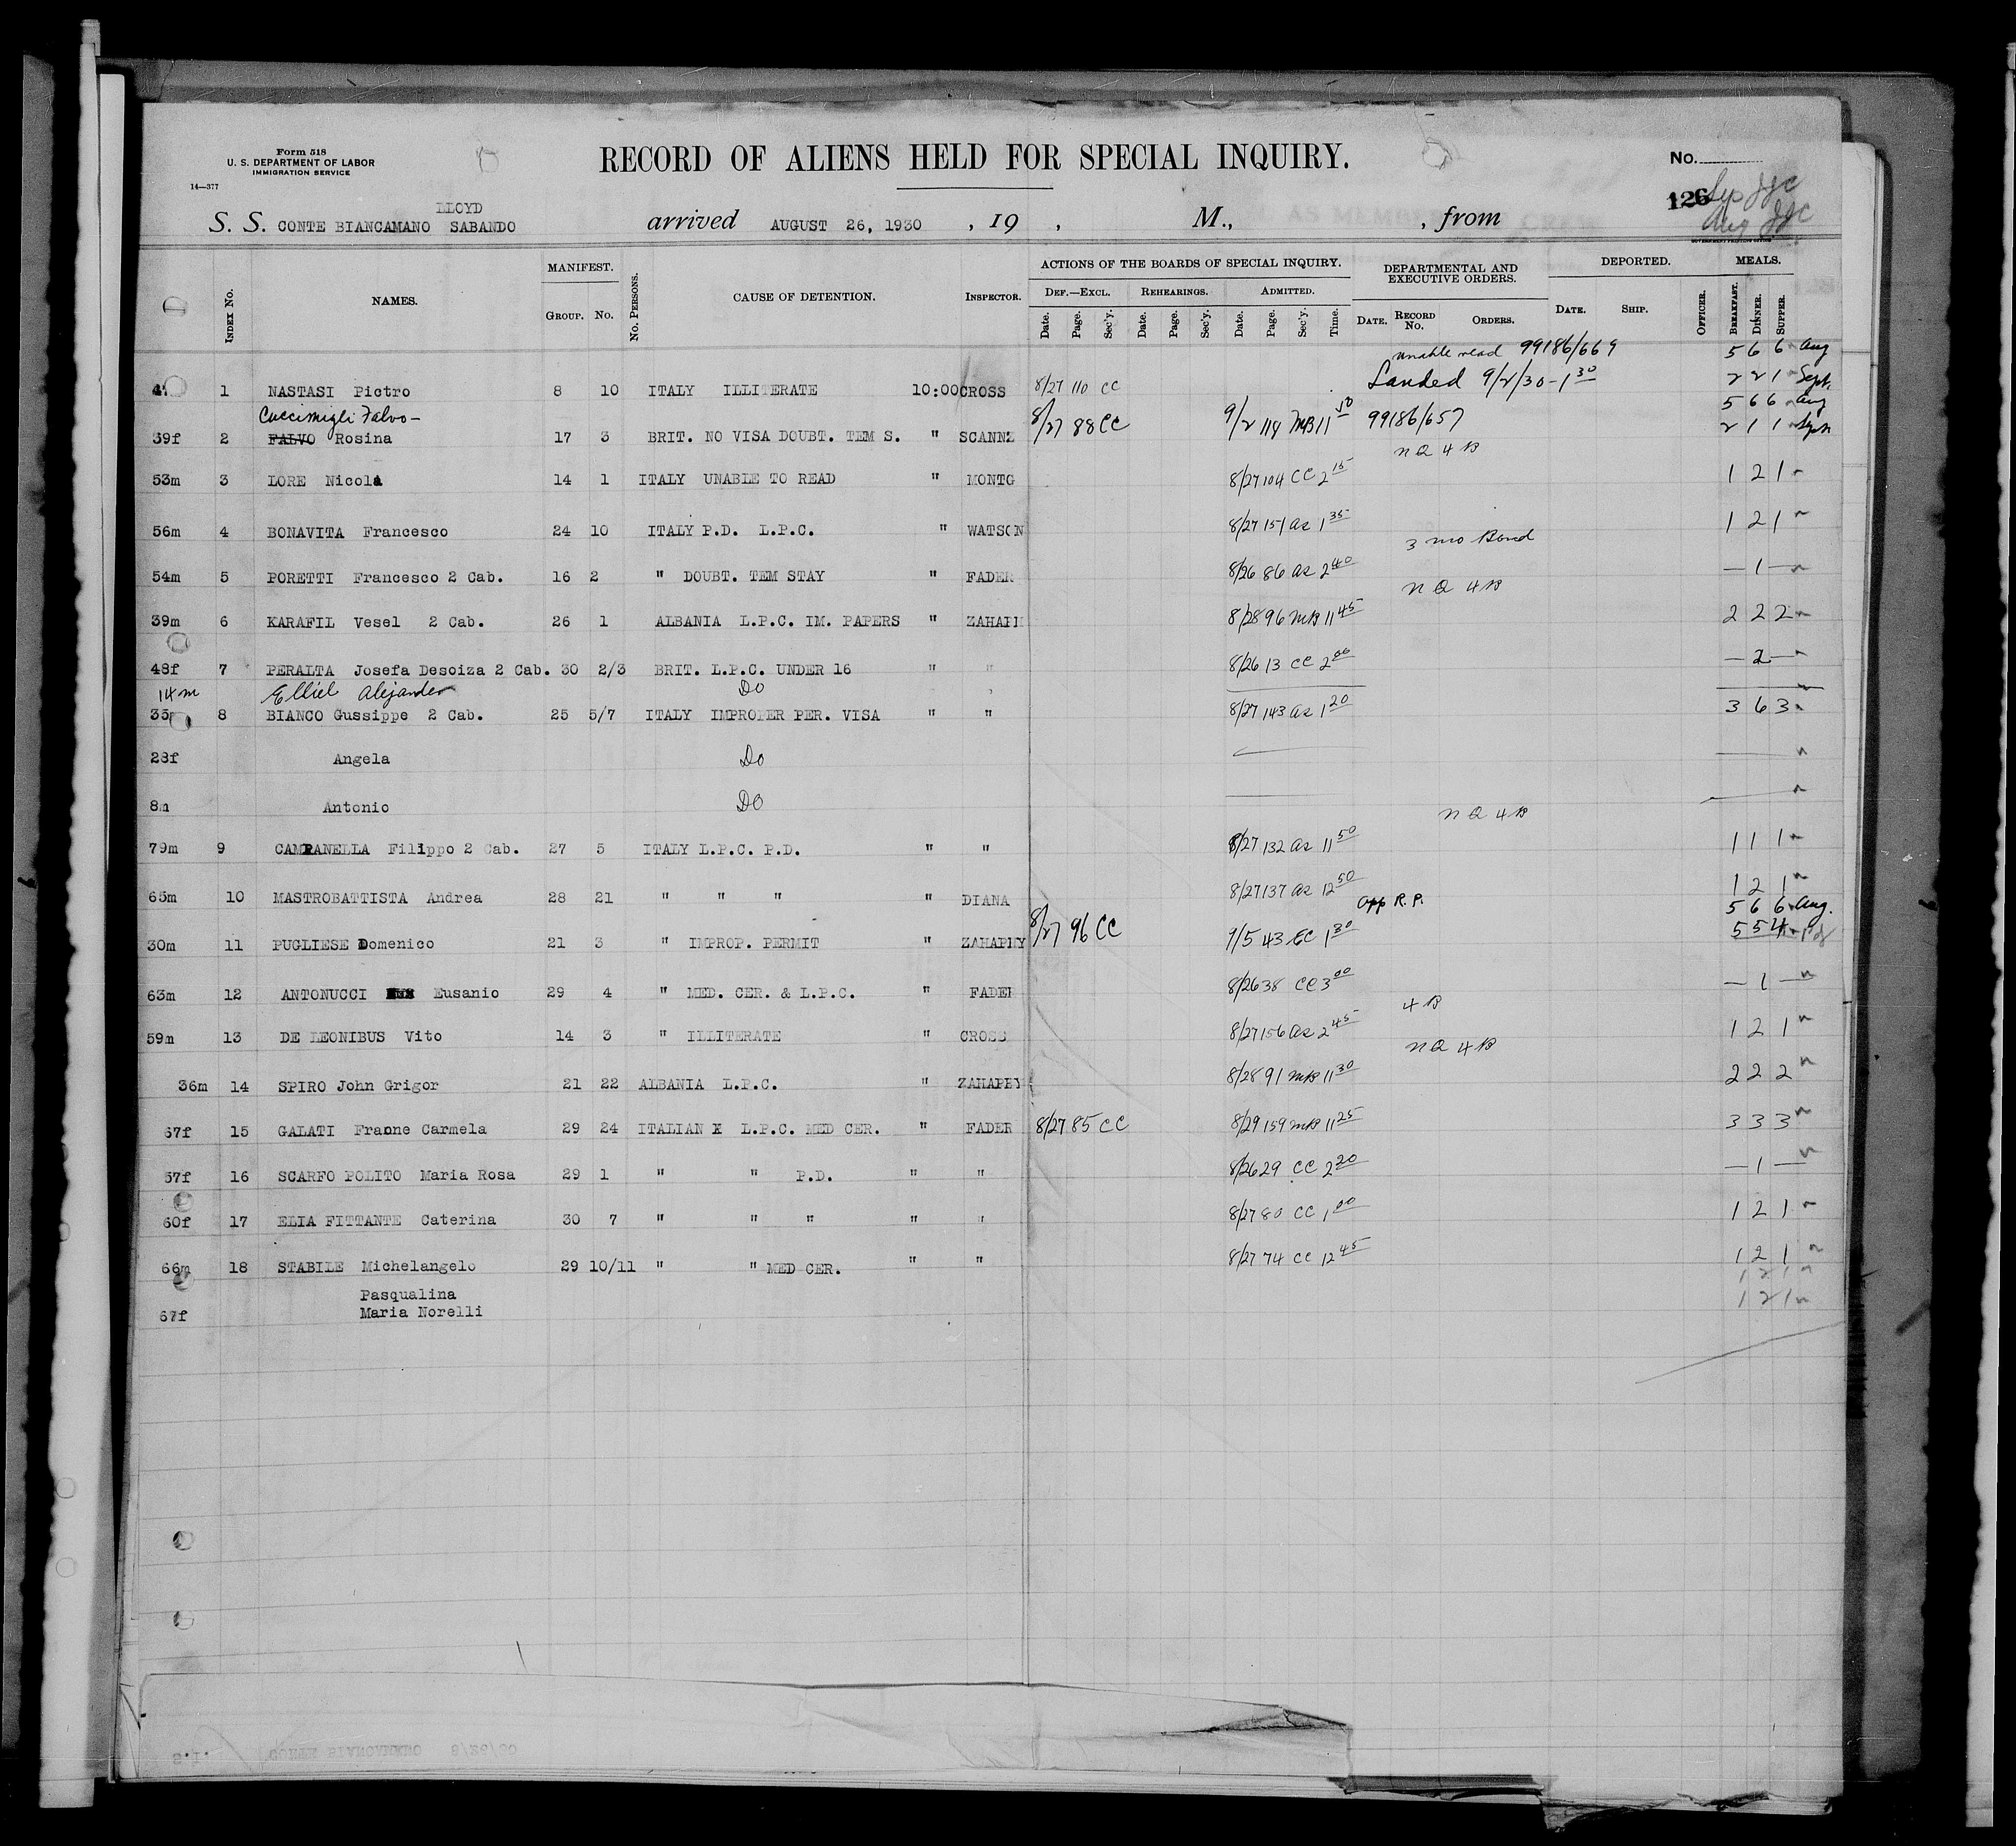 Form 518
U. S. DEPARTMENT OF LABOR
IMMIGRATION SERVICE
14—377
RECORD OF ALIENS HELD FOR SPECIAL INQUIRY.
No.
126
LLOYD
S. S. CONTE BIANCAMANO SABANDO arrived AUGUST 26, 1930 , 19 , M., , from
INDEX No. NAMES. MANIFEST. GROUP. No. No. PERSONS. CAUSE OF DETENTION. INSPECTOR. ACTIONS OF THE BOARDS OF SPECIAL INQUIRY. DEF.—EXCL. Date. Page. Sec'y. REHEARINGS. Date. Page. Sec'y. ADMITTED. Date. Page. Sec'y. Time. DEPARTMENTAL AND EXECUTIVE ORDERS. DATE. RECORD No. ORDERS. DEPORTED. DATE. SHIP. OFFICER. MEALS. BREAKFAST. DINNER. SUPPER.
unable read 99186/669 5 6 6 Aug
1 NASTASI Pictro 8 10 ITALY ILLITERATE 10:00 CROSS 8/27 110 CC Landed 9/2/30 - 1 30 2 2 1 Sept.
Cuccimigli Falvo - 5 6 6 Aug
39f 2 FALVO Rosina 17 3 BRIT. NO VISA DOUBT. TEM S. " SCANNZ 8/27 88 CC 9/2 118 MB 11 50 99186/657 2 1 1 Sept
N Q 4 B
53m 3 LORE Nicola 14 1 ITALY UNABLE TO READ " MONTG 8/27 104 CC 2 15 1 2 1
56m 4 BONAVITA Francesco 24 10 ITALY P.D. L.P.C. " WATSON 8/27 151 as 1 35 1 2 1
3 mo Bond
54m 5 PORETTI Francesco 2 Cab. 16 2 " DOUBT. TEM STAY " FADER 8/26 86 as 2 40 — 1 —
N Q 4 B
39m 6 KARAFIL Vesel 2 Cab. 26 1 ALBANIA L.P.C. IM. PAPERS " 8/28 96 MB 11 45 2 2 2
48f 7 PERALTA Josefa Desoiza 2 Cab. 30 2/3 BRIT. L.P.C. UNDER 16 " " 8/26 13 CC 2 00 — 2 —
14m Elliel Alejander Do
8 BIANCO Gussippe 2 Cab. 25 5/7 ITALY IMPROPER PER. VISA " " 8/27 143 as 1 20 3 6 3
28f Angela Do
8m Antonio Do
N Q 4 B
79m 9 CAMPANELLA Filippo 2 Cab. 27 5 ITALY L.P.C. P.D. " " 8/27 132 as 11 50 1 1 1
65m 10 MASTROBATTISTA Andrea 28 21 " " " " DIANA 8/27 137 as 12 50 1 2 1
App R. P. 5 6 6 Aug.
30m 11 PUGLIESE Domenico 21 3 " IMPROP. PERMIT " ZAHAPHY 8/27 96 CC 9/5 43 EC 1 30 5 5 4
63m 12 ANTONUCCI Eusanio 29 4 " MED. CER. & L.P.C. " FADER 8/26 38 CC 3 00 — 1 —
4 B
59m 13 DE LEONIBUS Vito 14 3 " ILLITERATE " CROSS 8/27 156 as 2 45 1 2 1
N Q 4 B
36m 14 SPIRO John Grigor 21 22 ALBANIA L.P.C. " ZAHAPHY 8/28 91 MB 11 30 2 2 2
67f 15 GALATI Fraone Carmela 29 24 ITALIAN X L.P.C. MED CER. " FADER 8/27 85 CC 8/29 159 MB 11 25 3 3 3
57f 16 SCARFO POLITO Maria Rosa 29 1 " " P.D. " " 8/26 29 CC 2 20 — 1 —
60f 17 ELIA FITTANTE Caterina 30 7 " " " " " 8/27 80 CC 1 00 1 2 1
66m 18 STABILE Michelangelo 29 10/11 " " MED CER. " " 8/27 74 CC 12 45 1 2 1
1 2 1
Pasqualina 1 2 1
67f Maria Norelli